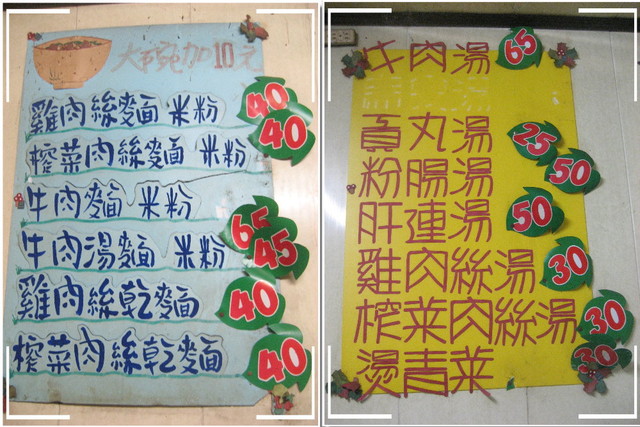 大碗加10元
雞肉絲麵 米粉 40
榨菜肉絲麵 米粉 40
牛肉麵 米粉 65
牛肉湯麵 米粉 45
雞肉絲乾麵 40
榨菜肉絲乾麵 40
牛肉湯 65
貢丸湯 25
粉腸湯 50
肝連湯 50
雞肉絲湯 30
榨菜肉絲湯 30
燙青菜 30